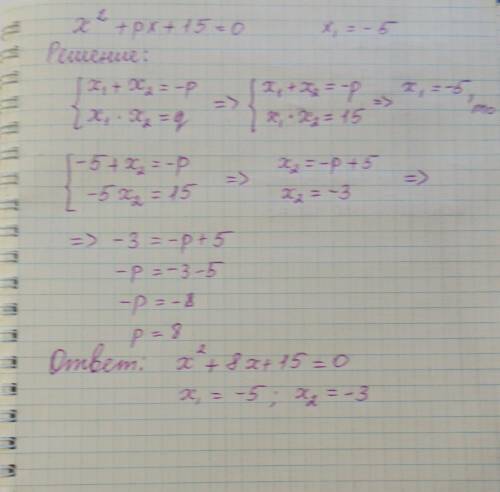 x² + px + 15 = 0 x₁ = -5
Решение:
{ x₁ + x₂ = -p => { x₁ + x₂ = -p => x₁ = -5,
{ x₁ · x₂ = q { x₁ · x₂ = 15 то
{ -5 + x₂ = -p => x₂ = -p + 5 =>
{ -5x₂ = 15 x₂ = -3
=> -3 = -p + 5
-p = -3 - 5
-p = -8
p = 8
Ответ: x² + 8x + 15 = 0
x₁ = -5 ; x₂ = -3